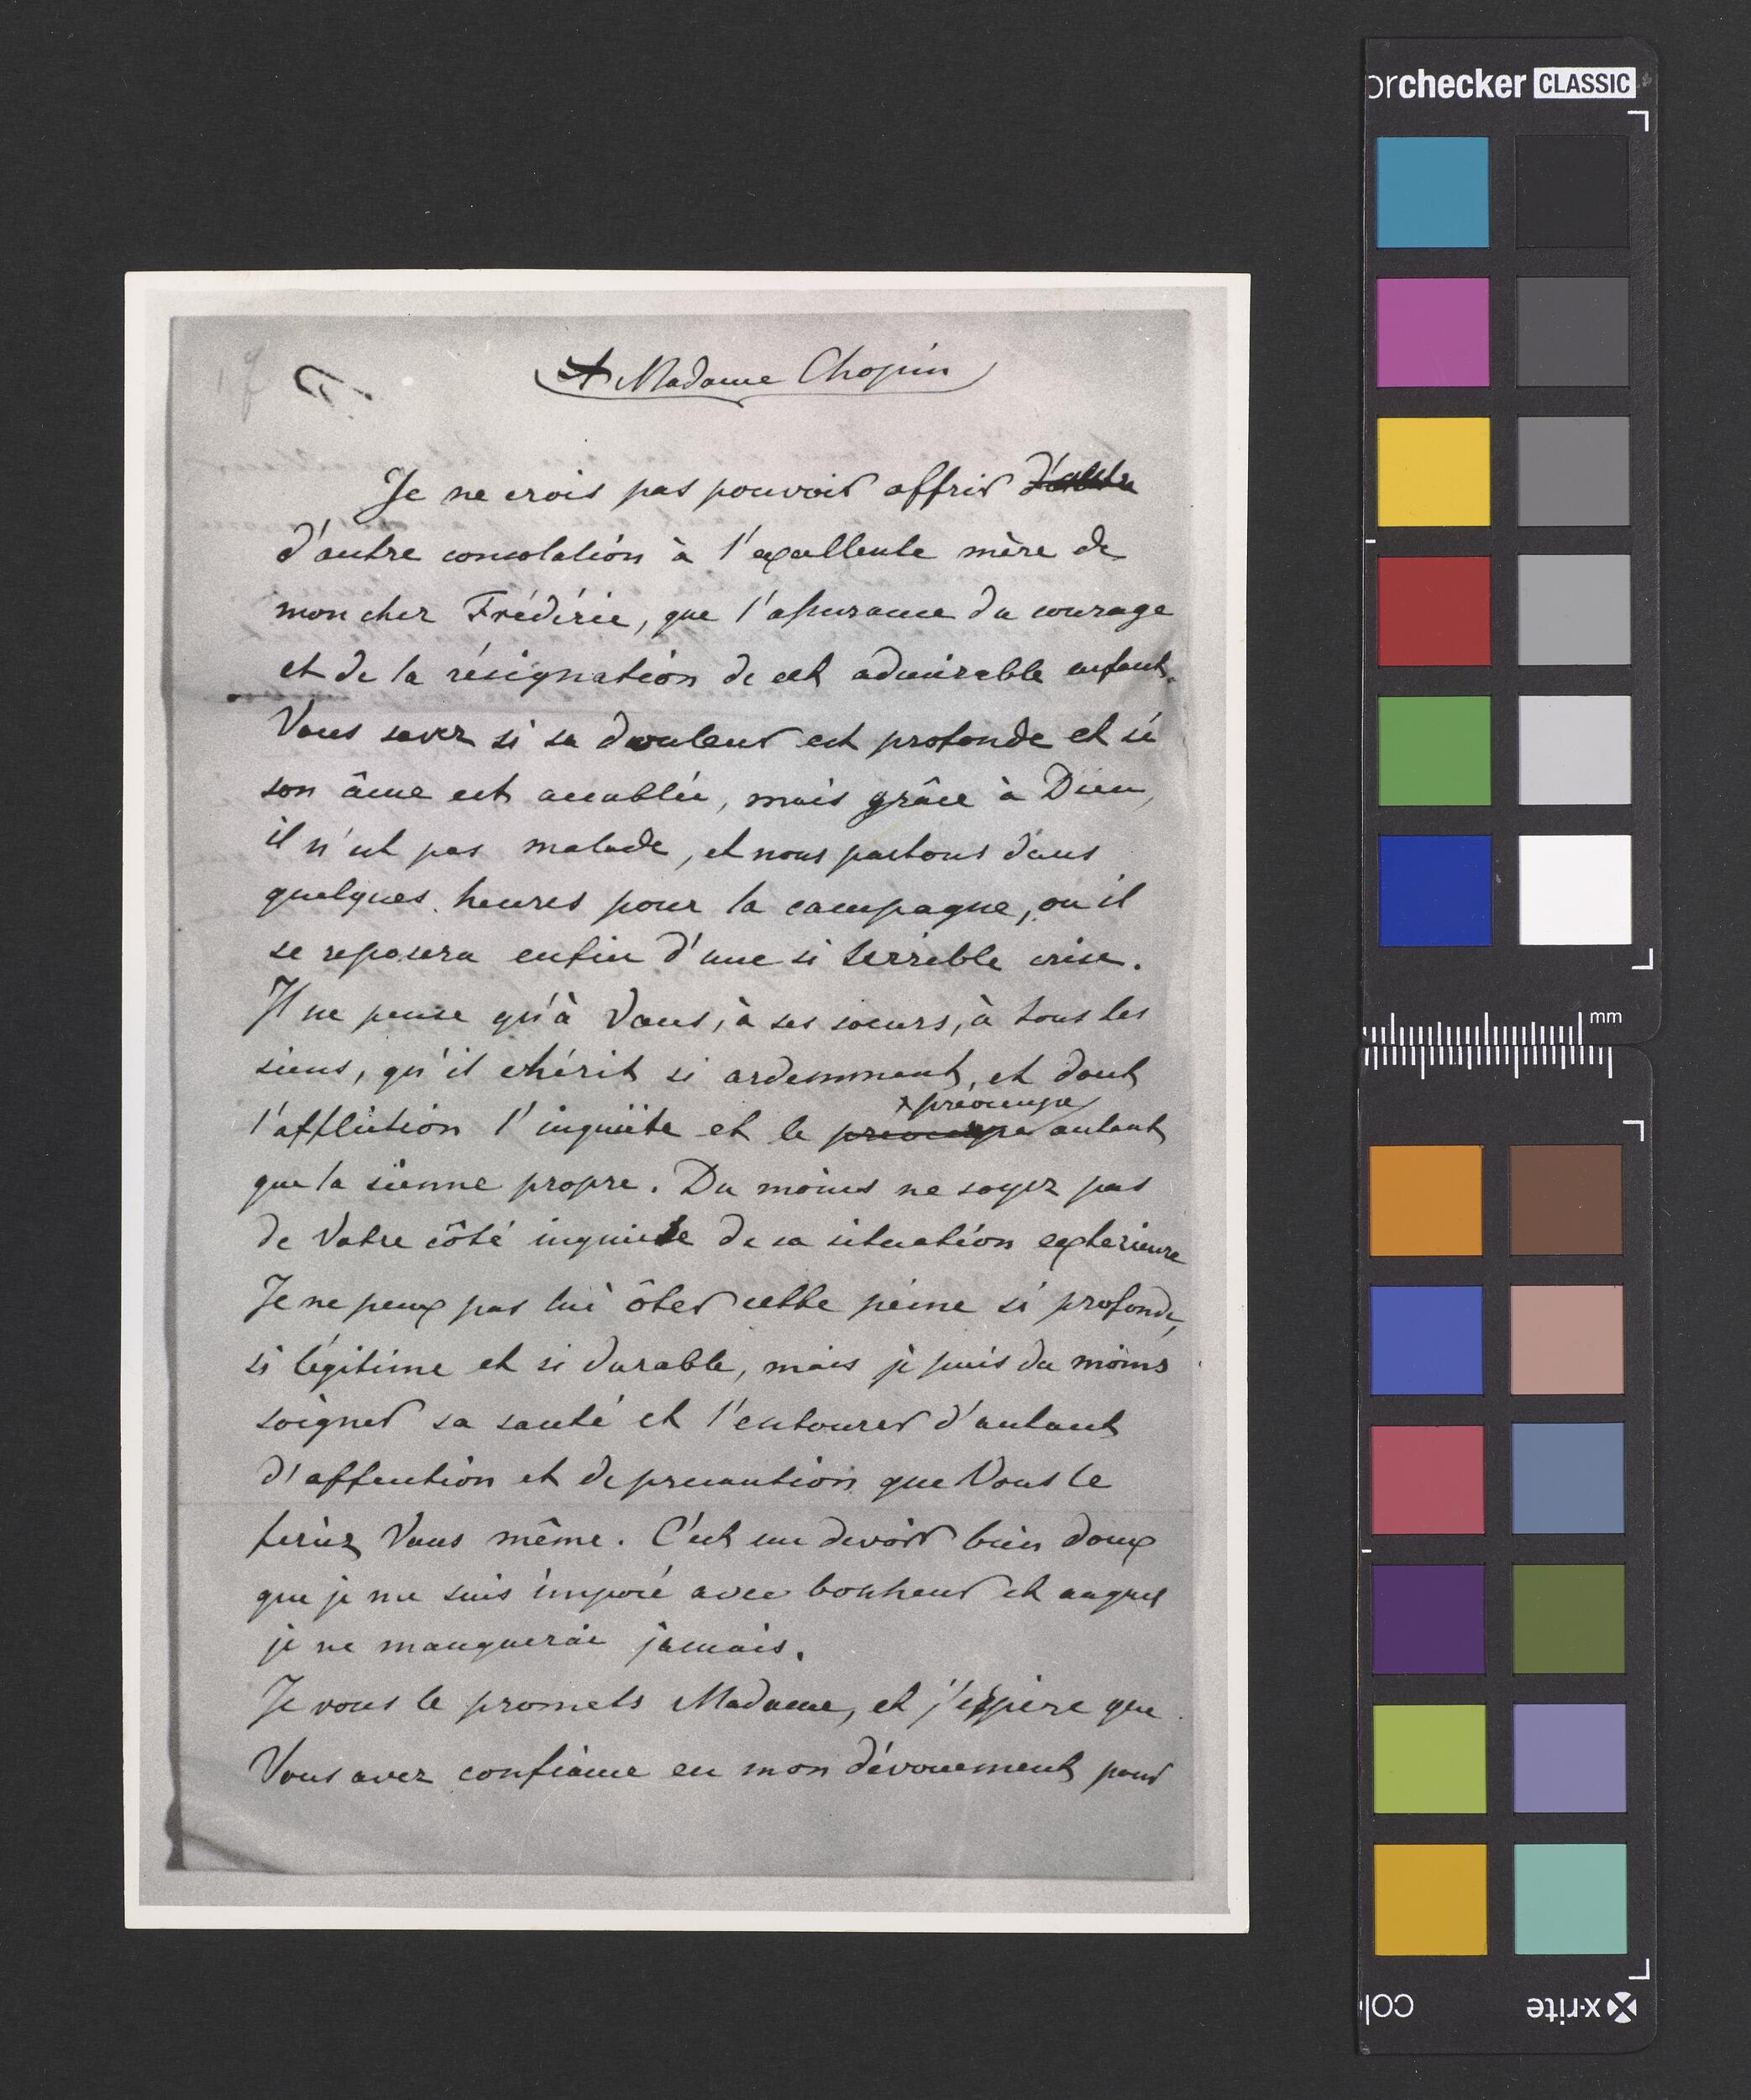 A Madame Chopin
Je ne crois pas pouvoir offrir d'autre
d'autre consolation à l'excellente mère de
mon cher Frédéric, que l'assurance du courage
et de la résignation de cet admirable enfant.
Vous savez si sa douleur est profonde et si
son âme est accablée, mais grâce à Dieu,
il n'est pas malade, et nous partons dans
quelques heures pour la campagne, ou il
se reposera enfin d'une si terrible crise.
Il ne pense qu'à Vous, à ses soeurs, à tous les
siens, qu'il chérit si ardemment, et dont
preocupe
l'affliction l'inquiète et le preocupe autant
que la sienne propre. Du moins ne soyez pas
de Votre côté inquiete de sa situation exterieure
Je ne peux pas lui ôter cette peine si profonde,
si légitime et si durable, mais je puis du moins
soigner sa santé et l'entourer d'autant
d'affection et de precaution que Vous le
feriez Vous même. C'est un devoir bien doux
que je me suis imposé avec bonheur et auquel
je ne manquerai jamais.
Je vous le promets Madame, et j'espère que
Vous avez confiance en mon dévouement pour
orchecker CLASSIC
mm
x-rite
col